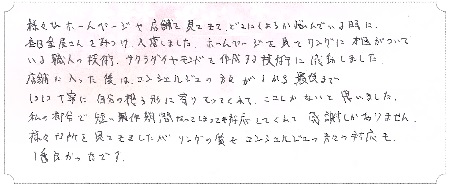 様々なホームページや店舗を見てきて、どこにしようか悩んでいる時に、
杢目金屋さんを見つけ、入店しました。ホームページで見てリングに木目がついて
いる職人の技術、サクラダイヤモンドを作成する技術に感動しました。
店舗に入った後は、コンシェルジュの方が1から最後まで
1つ1つ丁寧に自分の想う形に寄りそってくれて、ここしかないと思いました。
私の都合で短い製作期間になってしまっても対応してくれて感謝しかありません。
様々な所を見てきましたがリングの質もコンシェルジュの方々の対応も
1番良かったです。